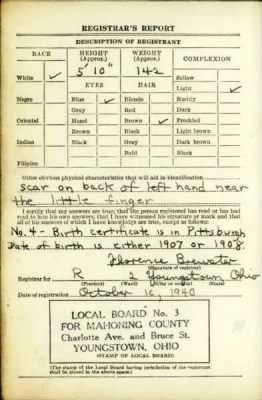 REGISTRAR'S REPORT
DESCRIPTION OF REGISTRANT
RACE HEIGHT (Approx.) WEIGHT (Approx.) COMPLEXION
5' 10" 142
White ✓ Sallow
EYES HAIR Light ✓
Negro Blue ✓ Blonde Ruddy
Gray Red Dark
Oriental Hazel Brown ✓ Freckled
Brown Black Light brown
Indian Black Gray Dark brown
Bald Black
Filipino
Other obvious physical characteristics that will aid in identification
scar on back of left hand near
the little finger
I certify that my answers are true; that the person registered has read or has had
read to him his own answers; that I have witnessed his signature or mark and that
all of his answers of which I have knowledge are true, except as follows:
No. 4 - Birth certificate is in Pittsburgh
Date of birth is either 1907 or 1908.
Florence Brewster
(Signature of registrar)
Registrar for R 2 Youngstown Ohio
(Precinct) (Ward) (City or county) (State)
Date of registration October 16, 1940
LOCAL BOARD No. 3
FOR MAHONING COUNTY
Charlotte Ave. and Bruce St.
YOUNGSTOWN, OHIO
(STAMP OF LOCAL BOARD)
(The stamp of the Local Board having jurisdiction of the registrant
shall be placed in the above space.)